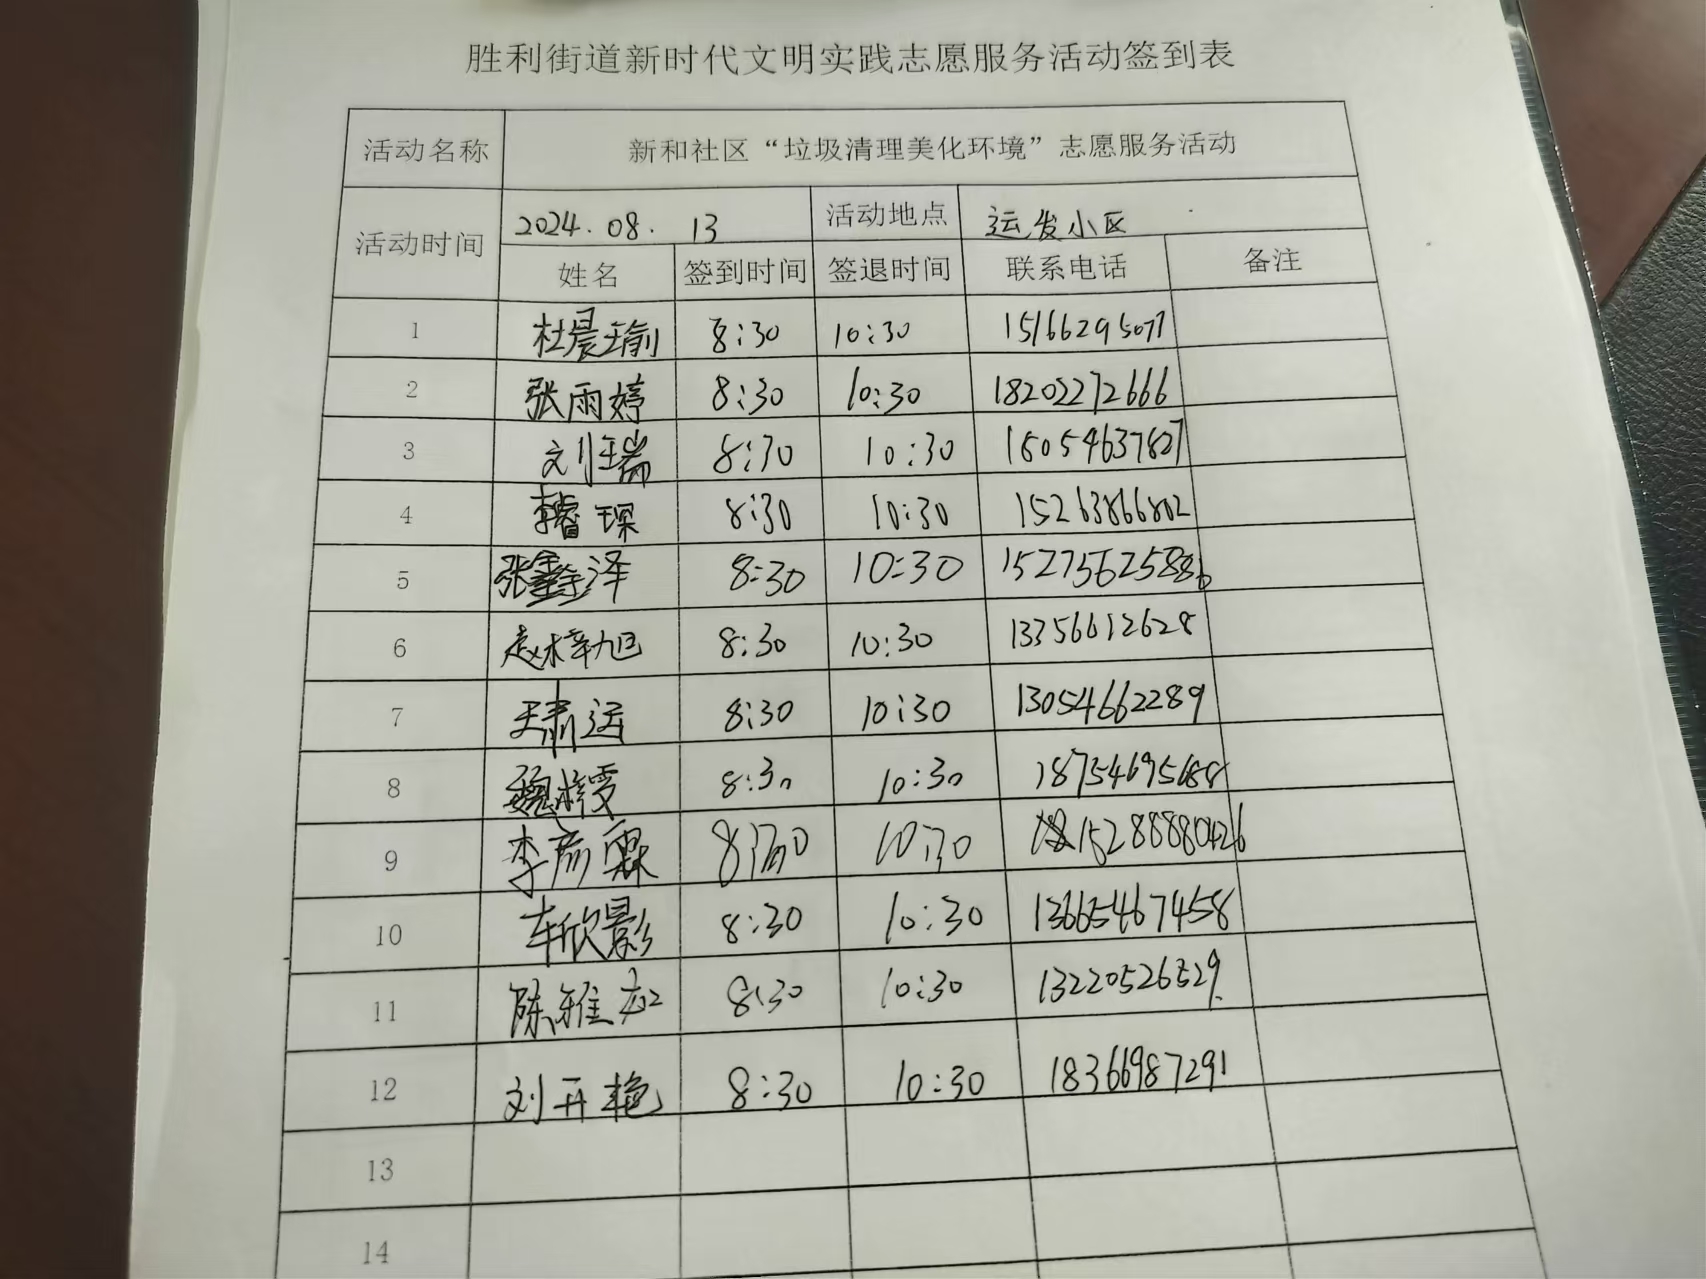 胜利街道新时代文明实践志愿服务活动签到表
活动名称 新和社区“垃圾清理美化环境”志愿服务活动
活动时间 2024.08.13 活动地点 运发小区
姓名 签到时间 签退时间 联系电话 备注
1 杜晨瑜 8:30 10:30 15166295077
2 张雨婷 8:30 10:30 18202272666
3 刘瑞 8:30 10:30 18054637827
4 李睿琛 8:30 10:30 15263866802
5 张鑫泽 8:30 10:30 15275625886
6 赵梓旭 8:30 10:30 13356612628
7 王肃运 8:30 10:30 13054662289
8 魏梓雯 8:30 10:30 18754695688
9 李彦霖 8:30 10:30 15288880426
10 车欣影 8:30 10:30 13665467458
11 陈雅 8:30 10:30 13220526529
12 刘开艳 8:30 10:30 18366987291
13
14